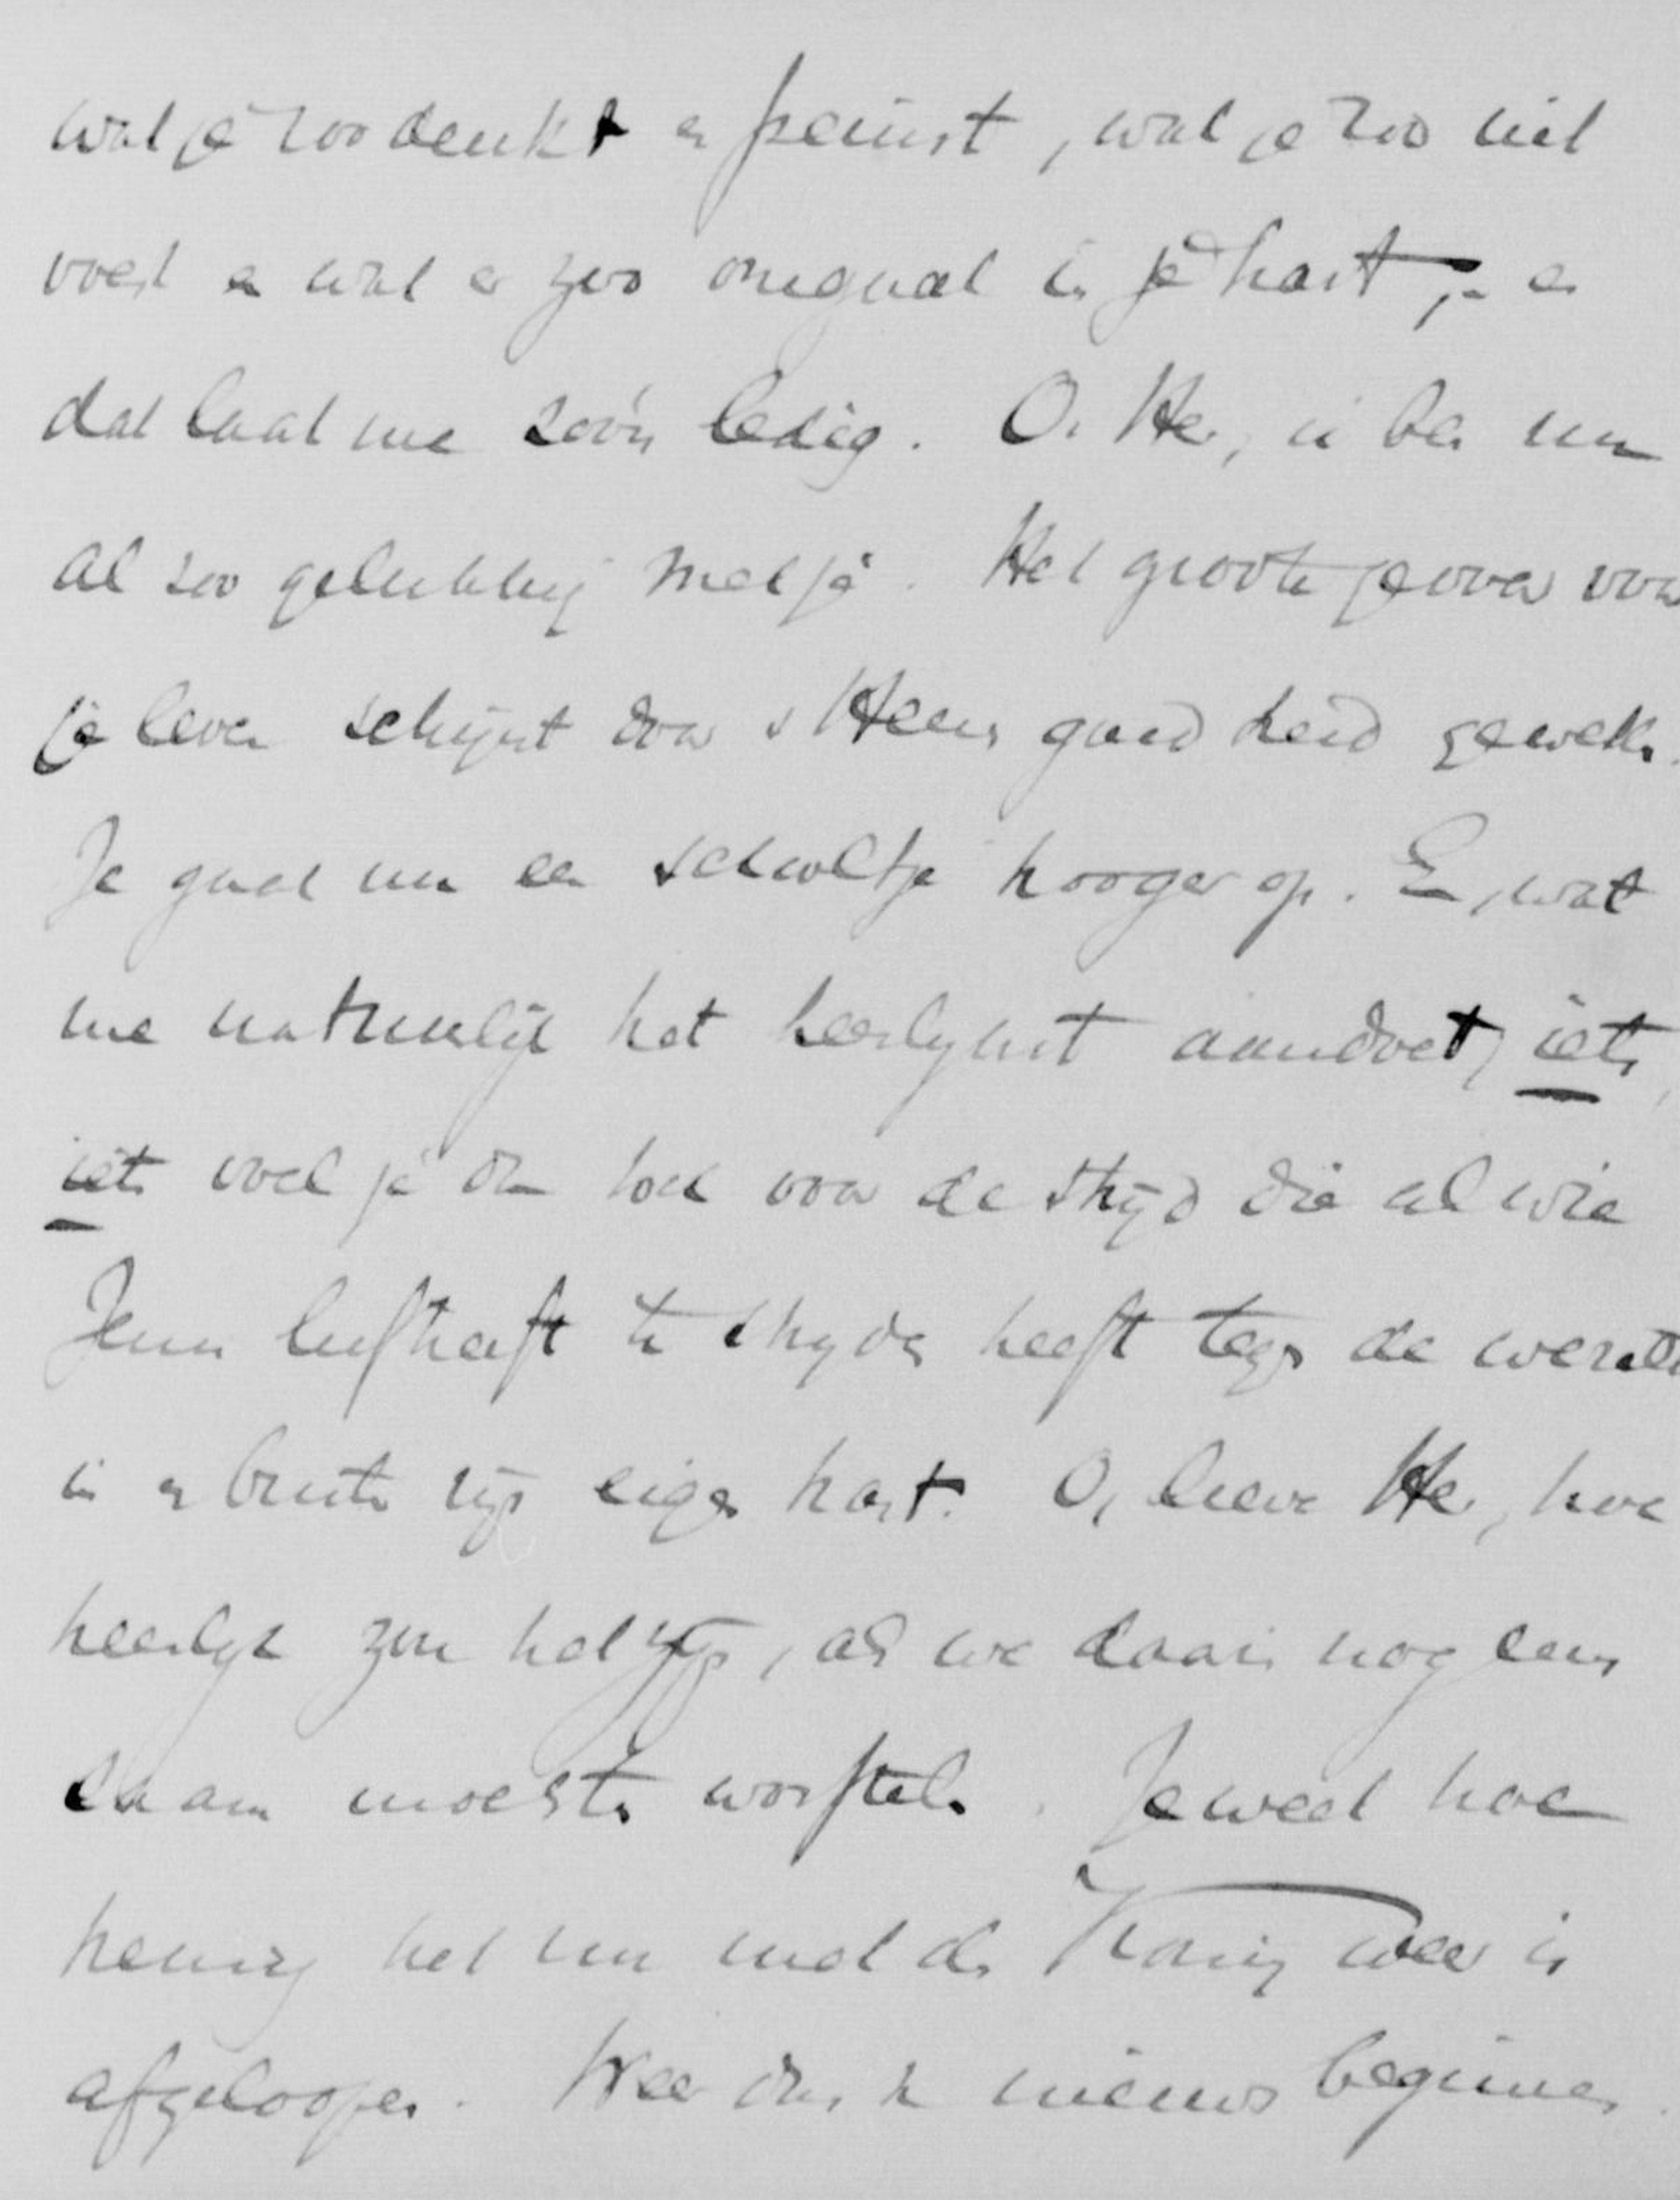 wat je zoo denkt en peinst, wat je zoo wil
voel en wat er zoo omgaat in je hart, - en
dat laat me zóó'n ledig. O. He, ik ben nu
al zoo gelukkig met je. Het groote gevaar voor
je leven schijnt door 's Heeren goedheid geweken.
Je gaat nu een schooltje hooger op. En, wat
me natuurlijk het heerlijkst aandoet, iets,
iets voel je dan toch voor de strijd die al wie
Jezus liefheeft te strijden heeft tegen de wereld
in en buiten zijn eigen hart. O, lieve He, hoe
heerlijk zou het zijn, als we daarin nog eens
saam moesten worstelen. Je weet hoe
het nu met de Koning weer is
afgeloopen. Weer dus 'n nieuw beginnen.